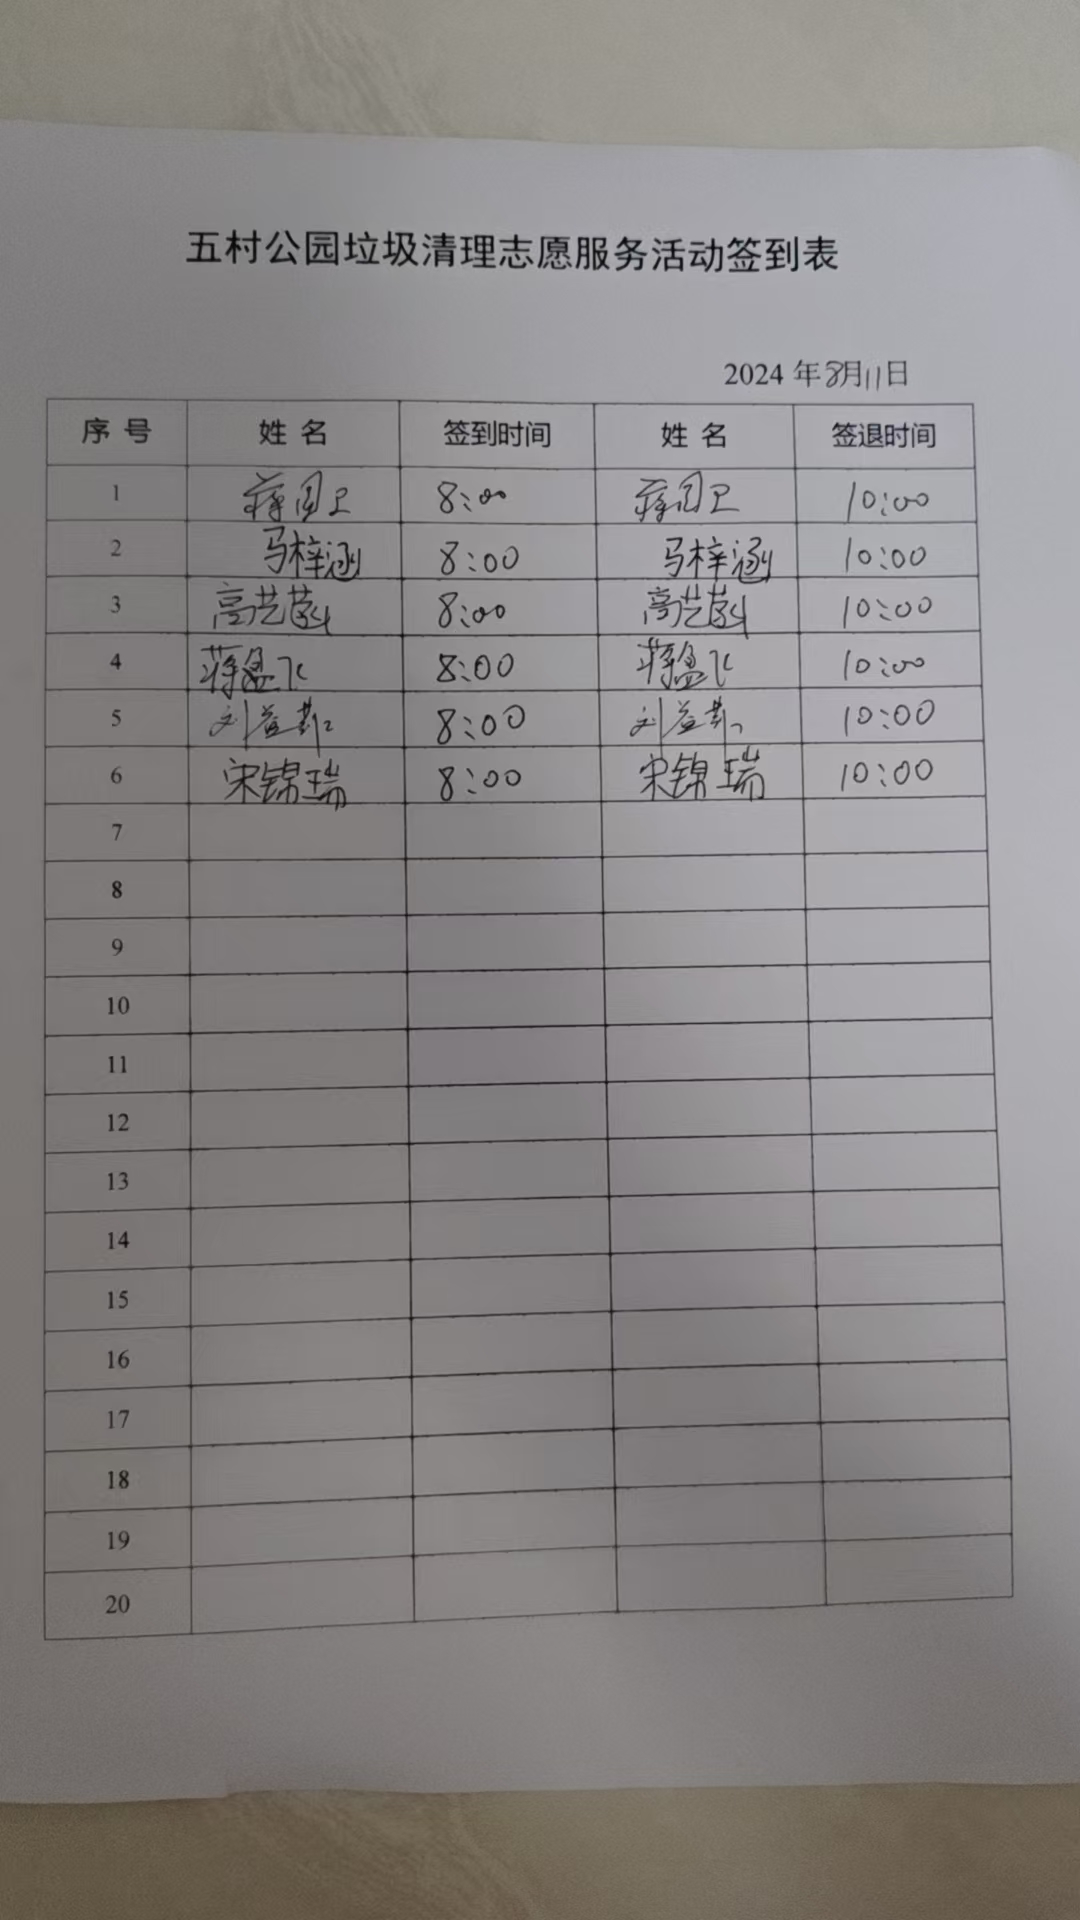 五村公园垃圾清理志愿服务活动签到表
2024 年 8月11日
序 号 姓 名 签到时间 姓 名 签退时间
1 蒋国卫 8:00 蒋国卫 10:00
2 马梓涵 8:00 马梓涵 10:00
3 高艺菡 8:00 高艺菡 10:00
4 蒋盈飞 8:00 蒋盈飞 10:00
5 刘益 8:00 刘益 10:00
6 宋锦瑞 8:00 宋锦瑞 10:00
7
8
9
10
11
12
13
14
15
16
17
18
19
20